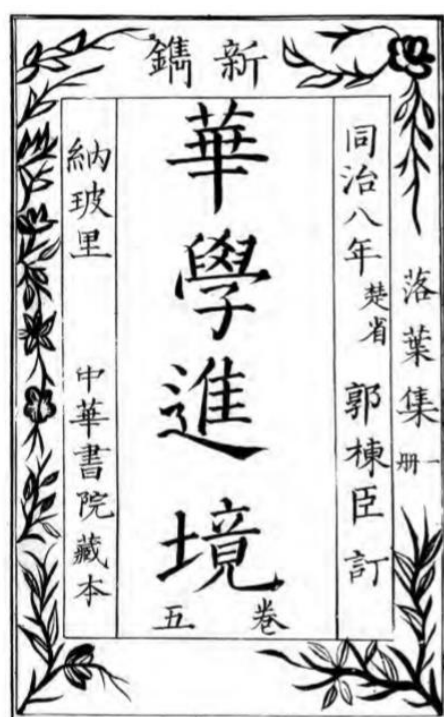 新鐫
落葉集 一册
同治八年 楚省 郭棟臣 訂
華學進境
卷五
納玻里 中華書院藏本